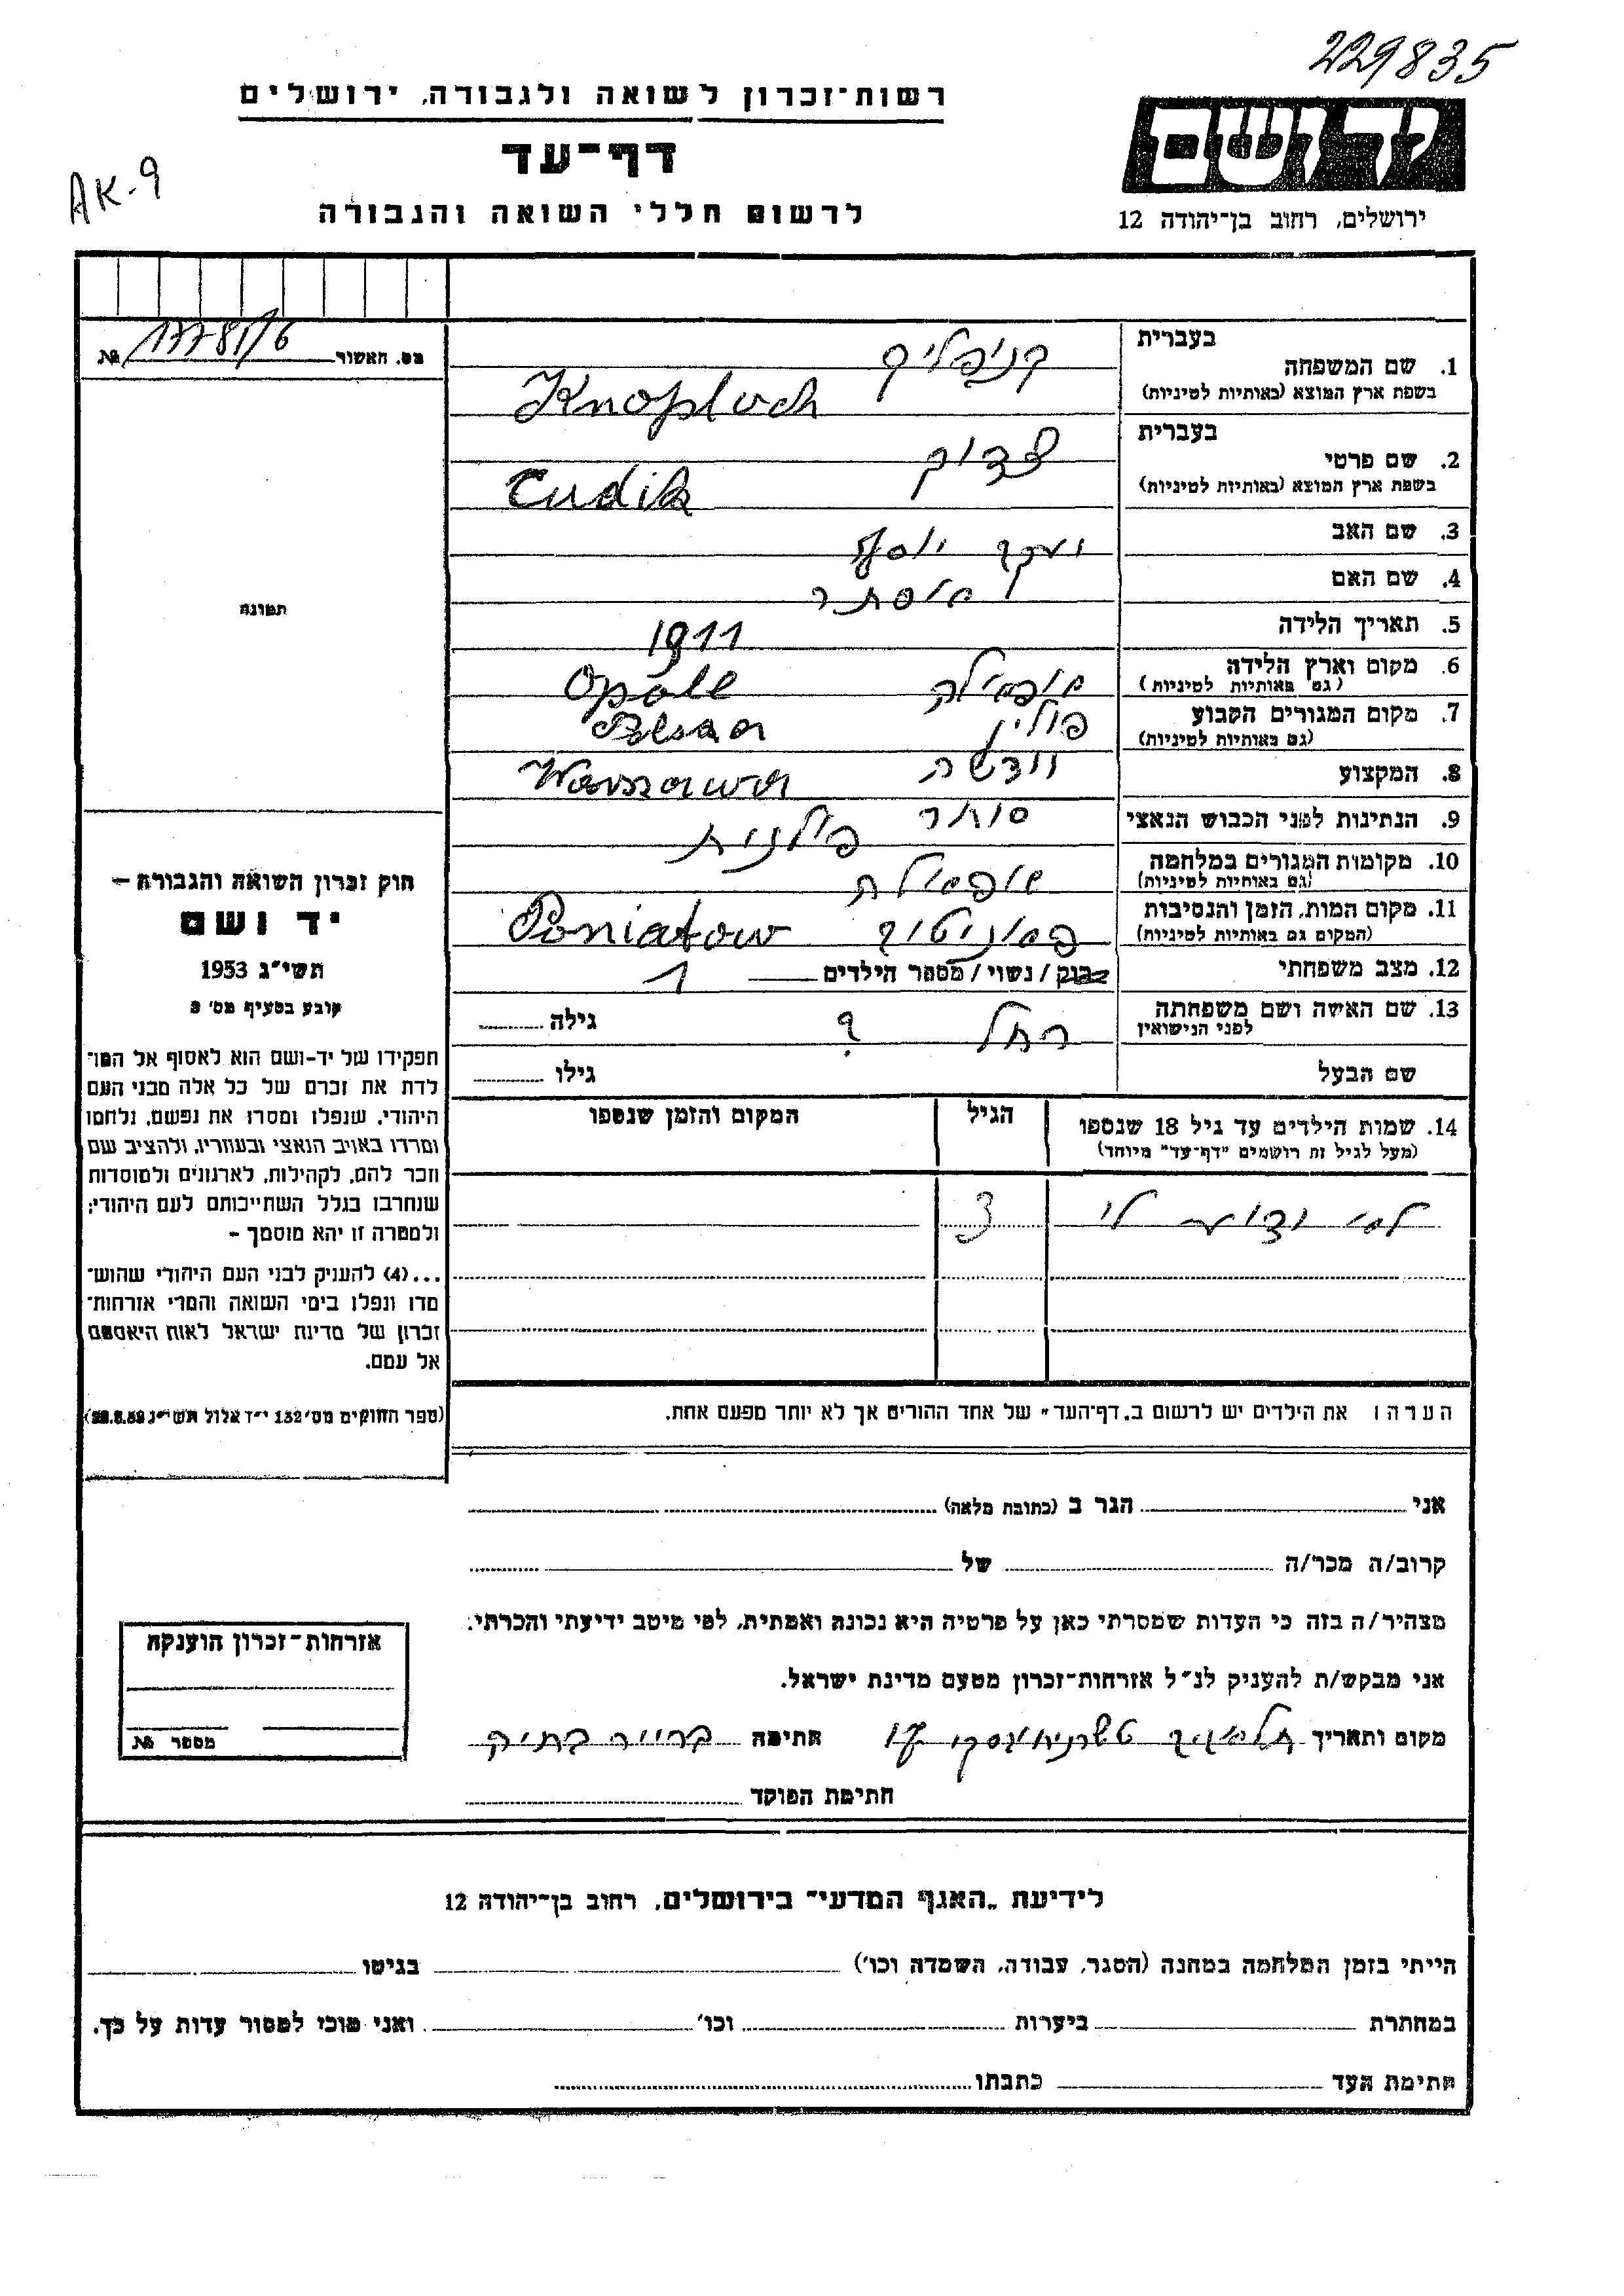 229835
רשות-זכרון לשואה ולגבורה, ירושלים
דף-עד
לרשום חללי השואה והגבורה
AK-9
יד ושם
ירושלים, רחוב בן-יהודה 12
מס. האשור № 17781/6
1. שם המשפחה
בעברית
בשפת ארץ המוצא (באותיות לטיניות)
Knopluch
2. שם פרטי
בעברית צדוק
בשפת ארץ המוצא (באותיות לטיניות)
Cudik
3. שם האב יעקב יוסף
4. שם האם אסתר
5. תאריך הלידה 1911
6. מקום וארץ הלידה
(גם באותיות לטיניות) אופולה Opole
פולין
7. מקום המגורים הקבוע
(גם באותיות לטיניות) וורשה Warszawa
8. המקצוע סוחר
9. הנתינות לפני הכבוש הנאצי פולנית
10. מקומות המגורים במלחמה
(גם באותיות לטיניות) אופולה
11. מקום המות, הזמן והנסיבות
(המקום גם באותיות לטיניות) פוניטוב Poniatow
12. מצב משפחתי רווק / נשוי / מספר הילדים 1
13. שם האשה ושם משפחתה
לפני הנישואין רחל ? גילה
שם הבעל גילו
14. שמות הילדים עד גיל 18 שנספו
(מעל לגיל זה רושמים "דף-עד" מיוחד)
הגיל
המקום והזמן שנספו
לא ידוע לי 3
הערה: את הילדים יש לרשום ב"דף-העד" של אחד ההורים אך לא יותר מפעם אחת.
תמונה
חוק זכרון השואה והגבורה –
יד ושם
תשי"ג 1953
קובע בסעיף מס' 2
תפקידו של יד-ושם הוא לאסוף אל המו־
לדת את זכרם של כל אלה מבני העם
היהודי, שנפלו ומסרו את נפשם, נלחמו
ומרדו באויב הנאצי ובעוזריו, ולהציב שם
וזכר להם, לקהילות, לארגונים ולמוסדות
שנחרבו בגלל השתייכותם לעם היהודי;
ולמטרה זו יהא מוסמך –
...(4) להעניק לבני העם היהודי שהוש־
מדו ונפלו בימי השואה והמרי אזרחות־
זכרון של מדינת ישראל לאות היאספם
אל עמם.
(ספר החוקים מס' 132 י"ז אלול תשי"ג 28.8.53)
אני הגר ב (כתובת מלאה)
קרוב/ה מכר/ה של
מצהיר/ה בזה כי העדות שמסרתי כאן על פרטיה היא נכונה ואמתית, לפי מיטב ידיעתי והכרתי.
אני מבקש/ת להעניק לנ"ל אזרחות-זכרון מטעם מדינת ישראל.
מקום ותאריך תל אביב טשרניחובסקי חתימה
חתימת הפוקד
אזרחות-זכרון הוענקה
מספר №
לידיעת "האגף המדעי" בירושלים, רחוב בן-יהודה 12
הייתי בזמן המלחמה במחנה (הסגר, עבודה, השמדה וכו') בגיטו
במחתרת ביערות וכו' ואני מוכן למסור עדות על כך.
חתימת העד כתבתו